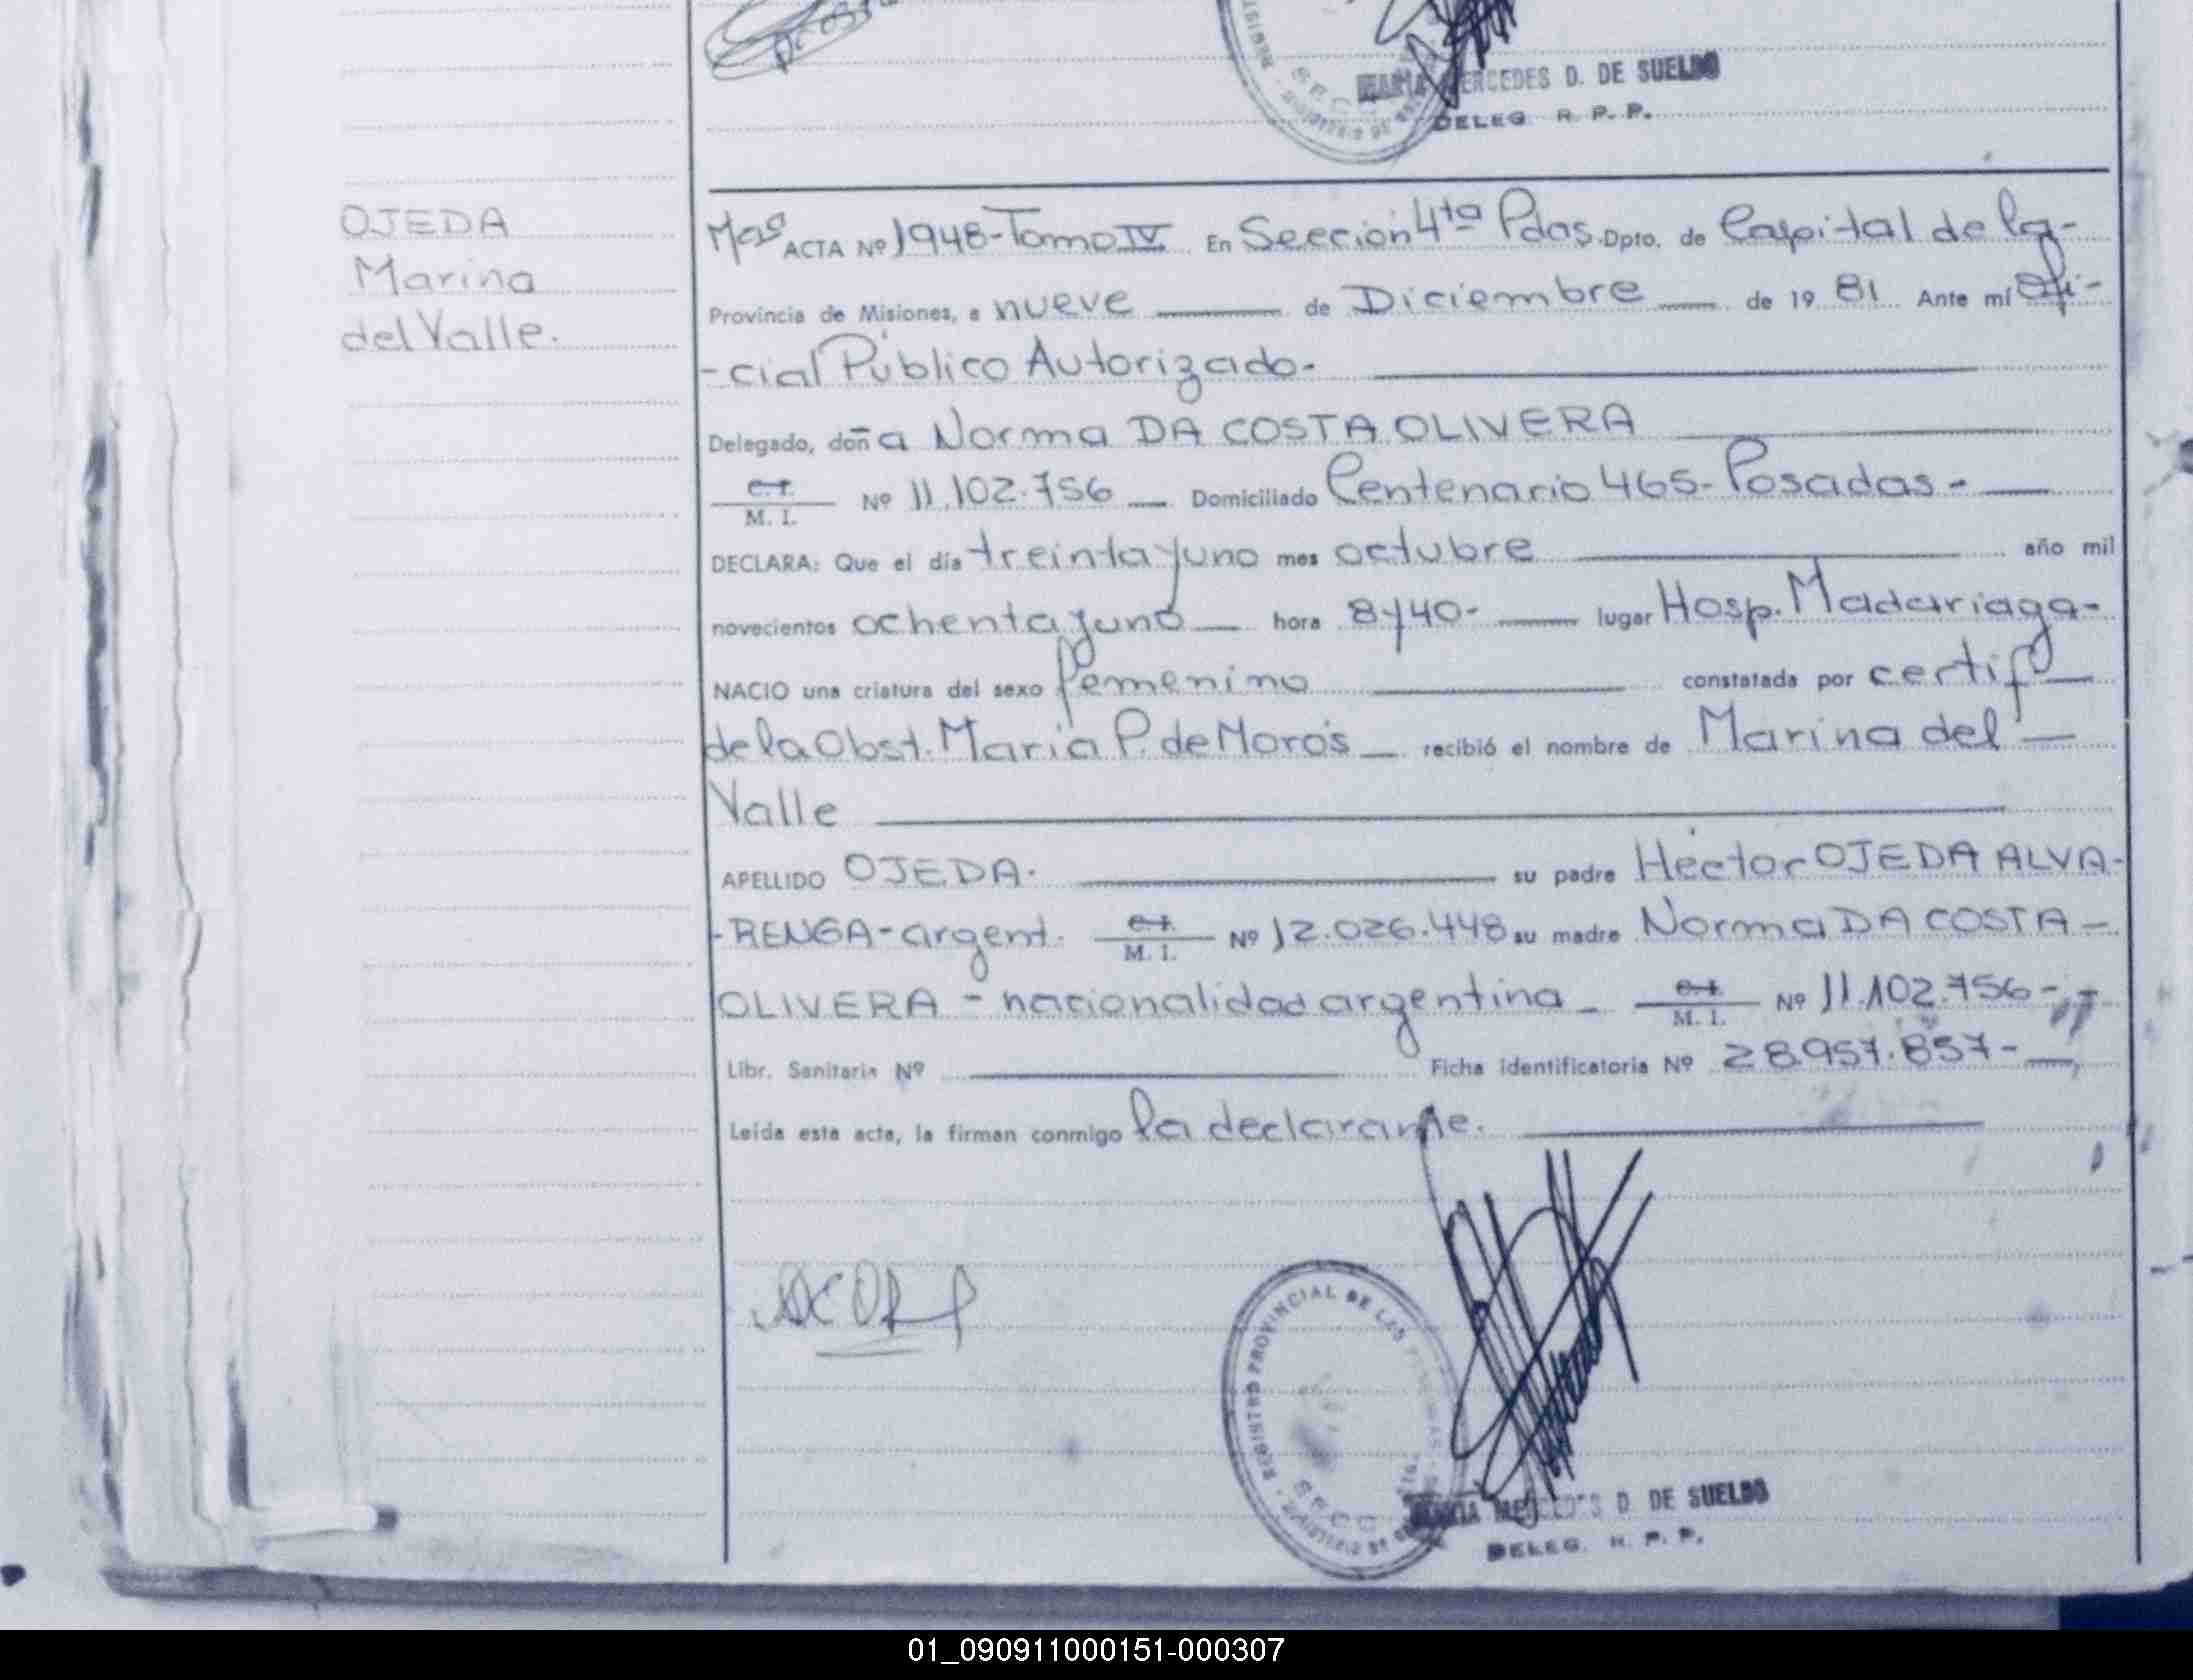 MARIA MERCEDES D. DE SUELDO
DELEG. R. P. P.
OJEDA
Marina
del Valle.
ACTA Nº 1948-Tomo IV En Sección 4ta Pdas. Dpto. de Capital de la-
Provincia de Misiones, a nueve de Diciembre de 19 81 Ante mí Ofi-
-cial Público Autorizado.
Delegado, doña Norma DA COSTA OLIVERA
C.I. M. I. Nº 11.102.756 Domiciliado Centenario 465-Posadas-
DECLARA: Que el día treinta y uno mes octubre año mil
novecientos ochenta y uno hora 8 y 40- lugar Hosp. Madariaga-
NACIO una criatura del sexo femenino constatada por certif
de la Obst. Maria P. de Moro's recibió el nombre de Marina del
Valle
APELLIDO OJEDA. su padre Héctor OJEDA ALVA-
-RENGA-argent. C.I. M. I. Nº 12.026.448 su madre Norma DA COSTA-
OLIVERA - nacionalidad argentina C.I. M. I. Nº 11.102.756-
Libr. Sanitaria Nº Ficha identificatoria Nº 28.957.857-
Leída esta acta, la firman conmigo la declarante.
REGISTRO PROVINCIAL DE LAS PERSONAS
SECC
MARIA MERCEDES D. DE SUELDO
DELEG. R. P. P.
01_090911000151-000307